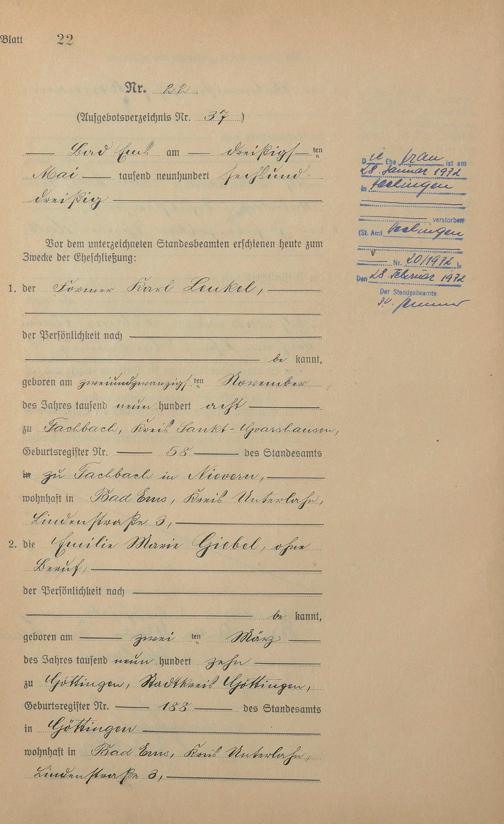 Blatt 22
Nr. 22
(Aufgebotsverzeichnis Nr. 37)
Bad Ems am dreißigsten
Mai tausend neunhundert sechsund
dreißig
Vor dem unterzeichneten Standesbeamten erschienen heute zum
Zwecke der Eheschließung:
1. der Former Karl Lenkel,
der Persönlichkeit nach
be kannt,
geboren am zweiundzwanzigsten November
des Jahres tausend neun hundert acht
zu Fachbach, Kreis Sankt-Goarshausen,
Geburtsregister Nr. 58 des Standesamts
in zu Fachbach in Nievern,
wohnhaft in Bad Ems, Kreis Unterlahn,
Lindenstraße 3,
2. die Emilie Marie Giebel, ohne
Beruf,
der Persönlichkeit nach
be kannt,
geboren am zwei ten März
des Jahres tausend neun hundert zehn
zu Göttingen, Stadtkreis Göttingen,
Geburtsregister Nr. 188 des Standesamts
in Göttingen
wohnhaft in Bad Ems, Kreis Unterlahn,
Lindenstraße 3,
Die Ehefrau ist am
28. Januar 1972
in
verstorben
(St. Amt
Nr. 20/1972
Den 28. Februar 1972
Der Standesbeamte